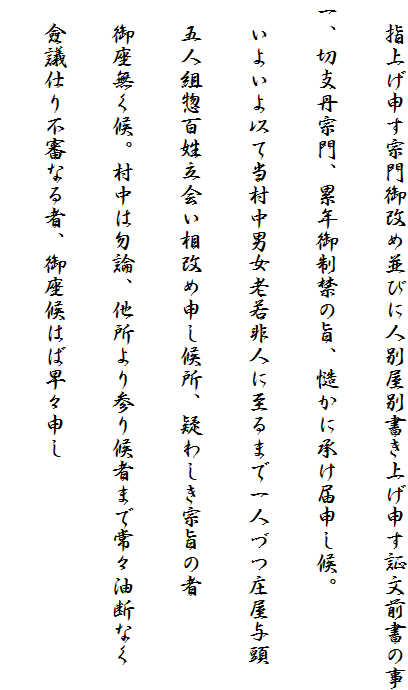 指上げ申す宗門御改め並びに人別屋別書き上げ申す証文前書の事
一、切支丹宗門、累年御制禁の旨、慥かに承け届申し候。
いよいよ以て当村中男女老若非人に至るまで一人づつ庄屋与頭
五人組惣百姓立会い相改め申し候所、疑わしき宗旨の者
御座無く候。村中は勿論、他所より参り候者まで常々油断なく
僉議仕り不審なる者、御座候はば早々申し